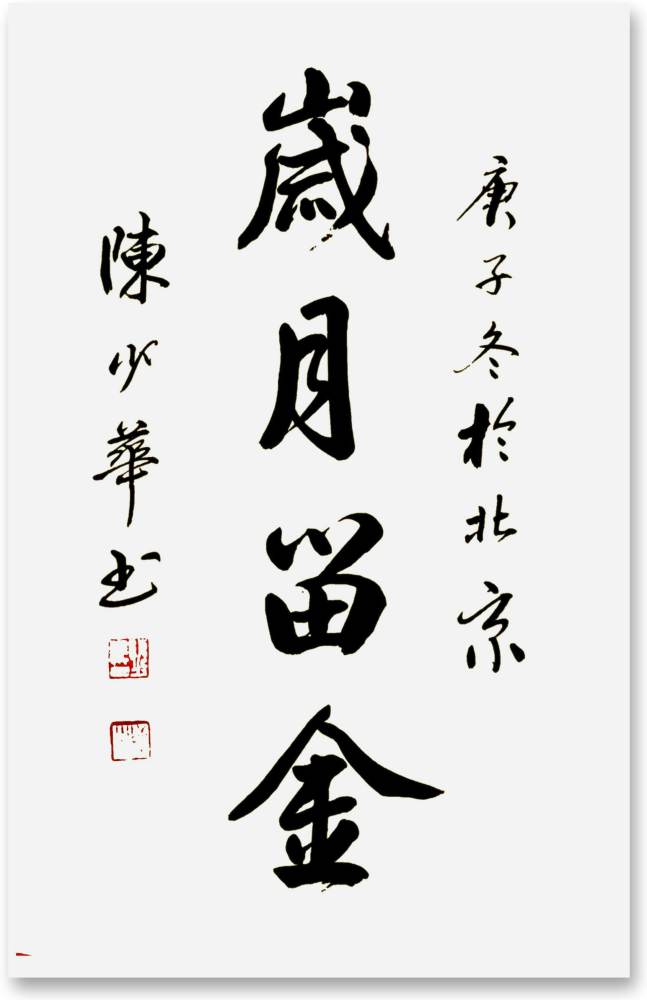 庚子冬於北京
歲月留金
陳少華书